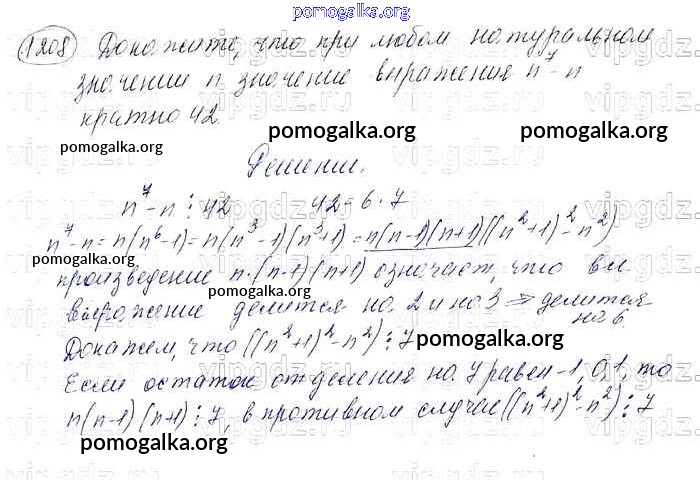 pomogalka.org
1208 Докажите, что при любом натуральном
значении n значение выражения n⁷-n
кратно 42
pomogalka.org pomogalka.org
Решение.
n⁷-n ⋮ 42 42=6·7
n⁷-n=n(n⁶-1)=n(n³-1)(n³+1)=n(n-1)(n+1)((n²+1)²-n²)
pomogalka.org
произведение n·(n-1)(n+1) означает, что
pomogalka.org
выражение делится на 2 и на 3 ⇒ делится
на 6
Докажем, что ((n²+1)²-n²) ⋮ 7
pomogalka.org
Если остаток от деления на 7 равен -1, 0, 1, то
n(n-1)(n+1) ⋮ 7, в противном случае ((n²+1)²-n²) ⋮ 7
pomogalka.org pomogalka.org